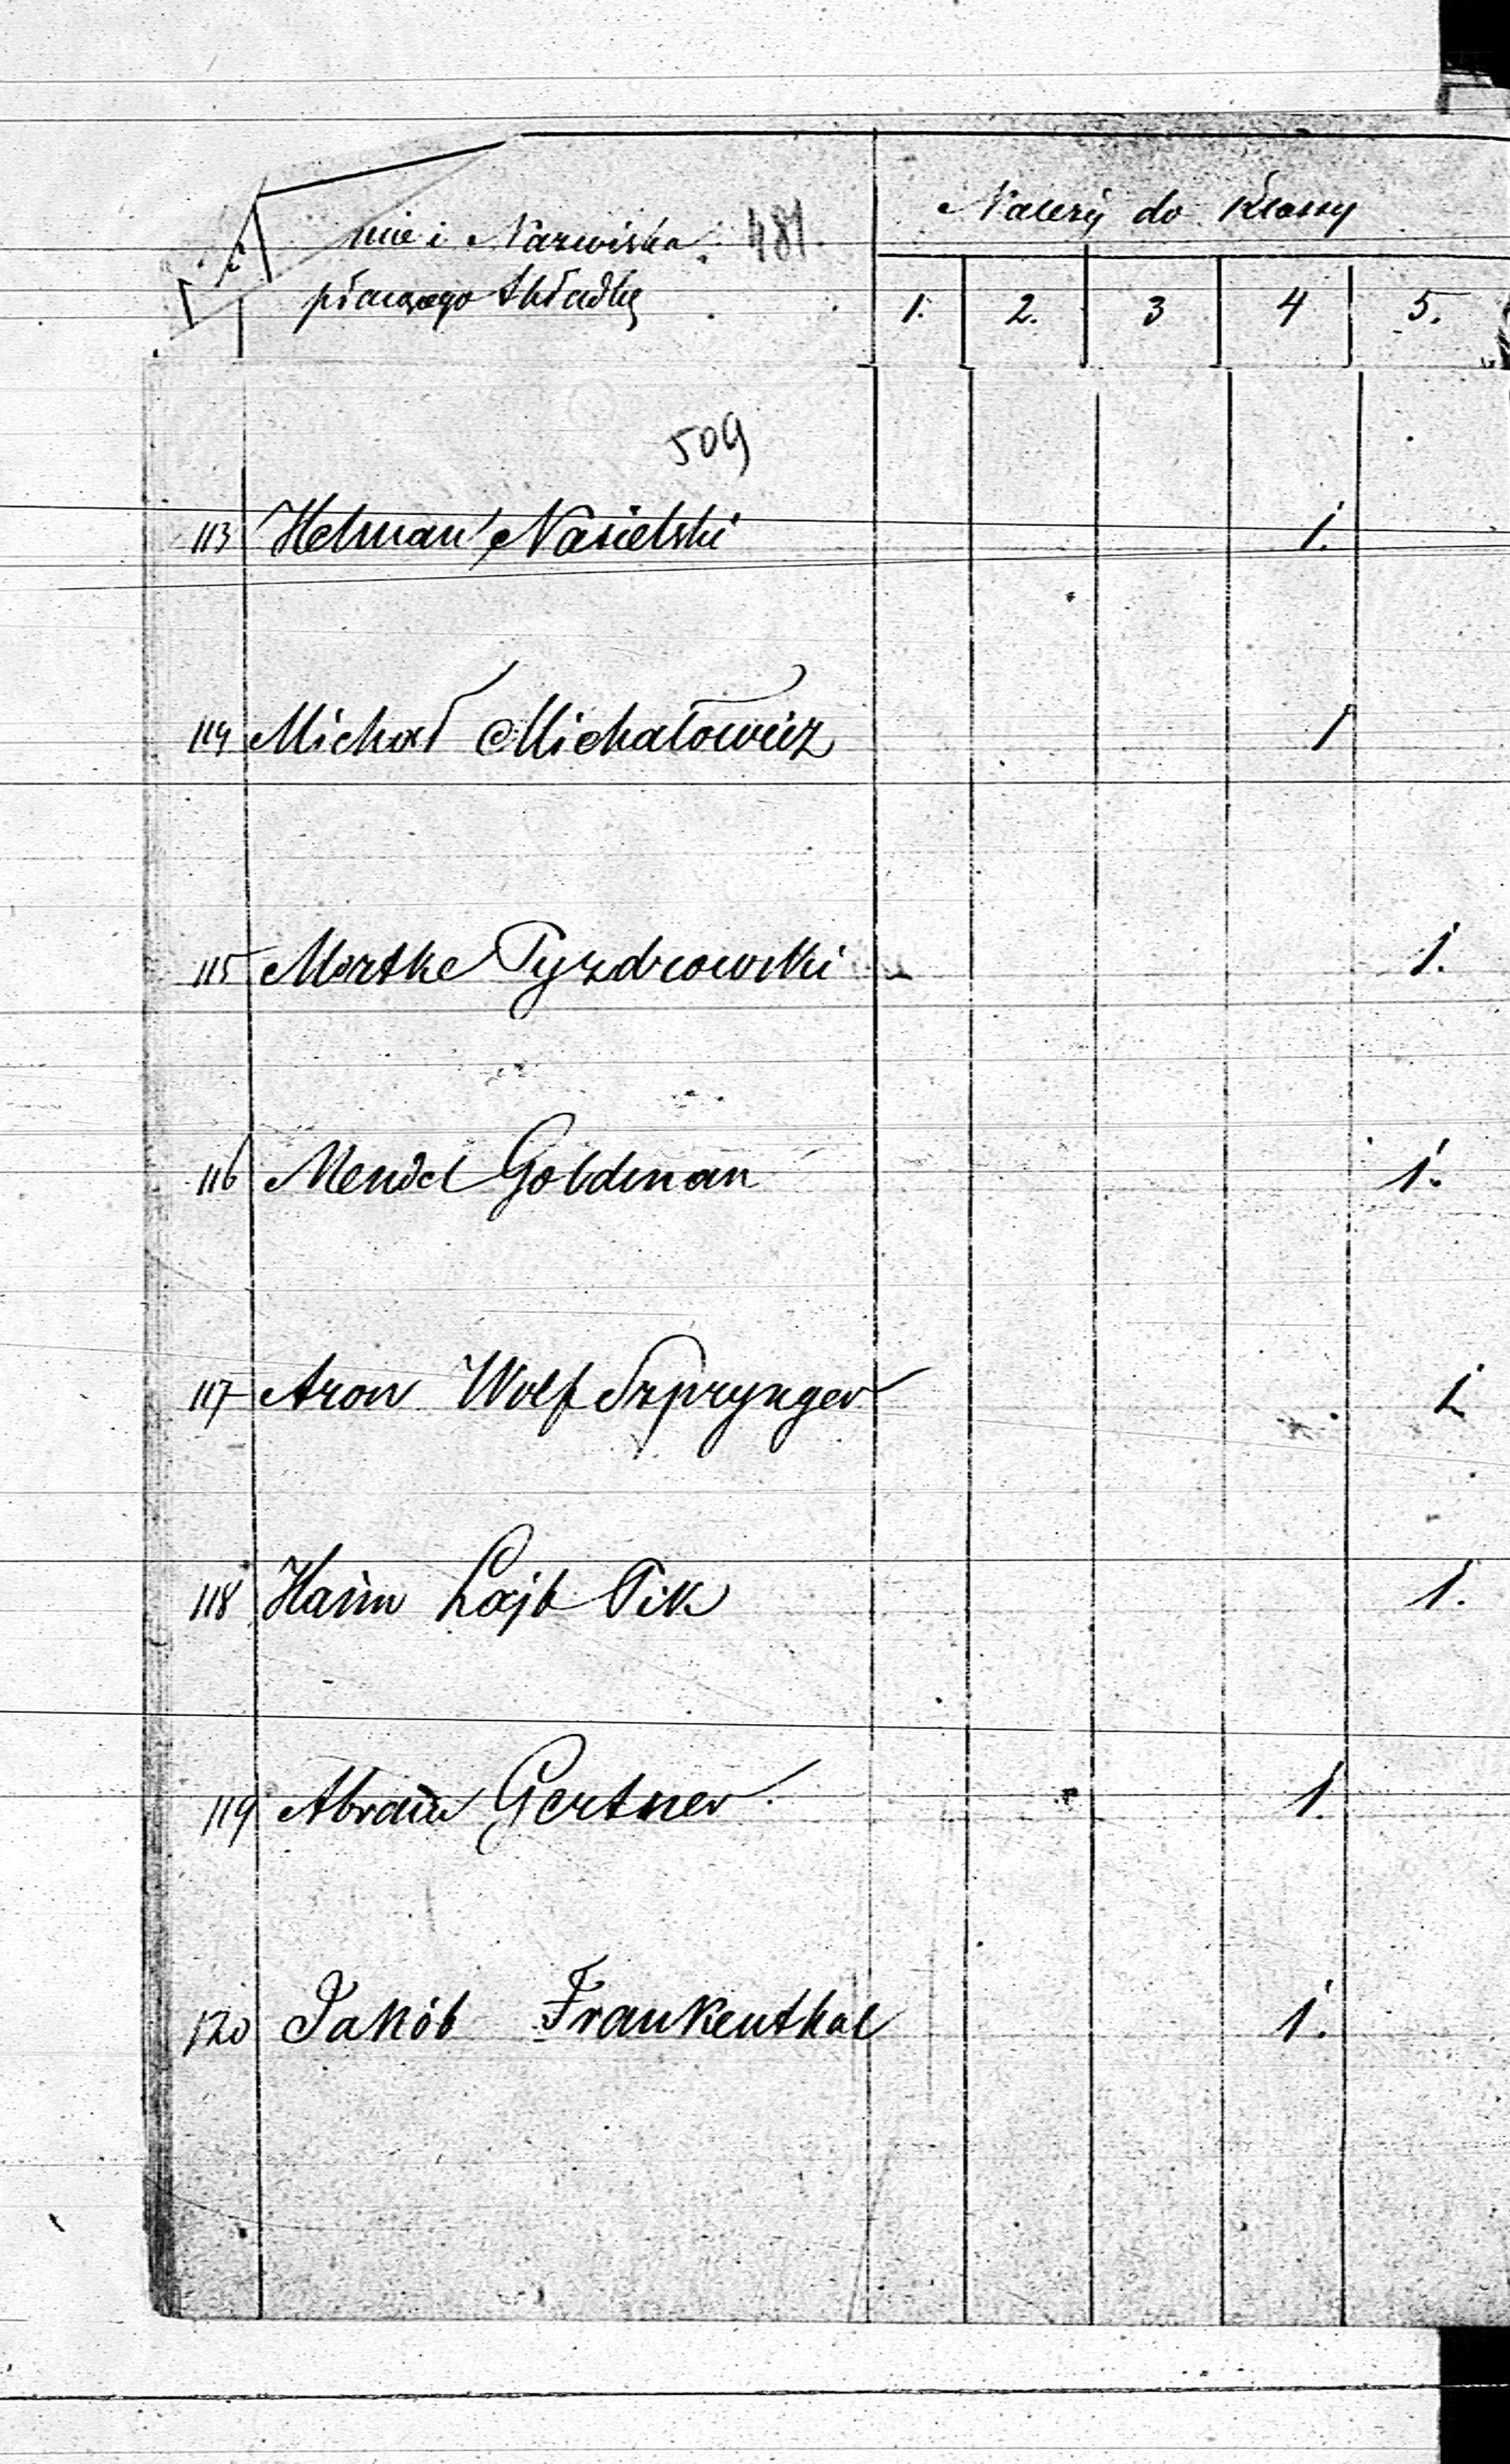 Należy do Klassy
mie i Nazwisko 481.
płacącego składkę
1. 2. 3 4 5.
509
113 Helman Nasielski 1.
114 Michał Michałowicz 1
115 Mortke Pyzdrowski 1.
116 Mendel Goldman 1.
117 Aron Wolf Szprynger 1
118 Haim Lajb Pik 1.
119 Abram Gertner. 1.
120 Jakób Frankenthal 1.